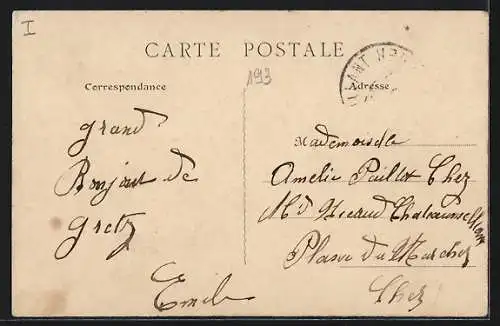 I
CARTE POSTALE
193
Correspondance
Adresse
grand
Bonjour de
Gretz
Emile
Mademoiselle
Amelie Paillot Chez
Md
Place du Marché
Cher